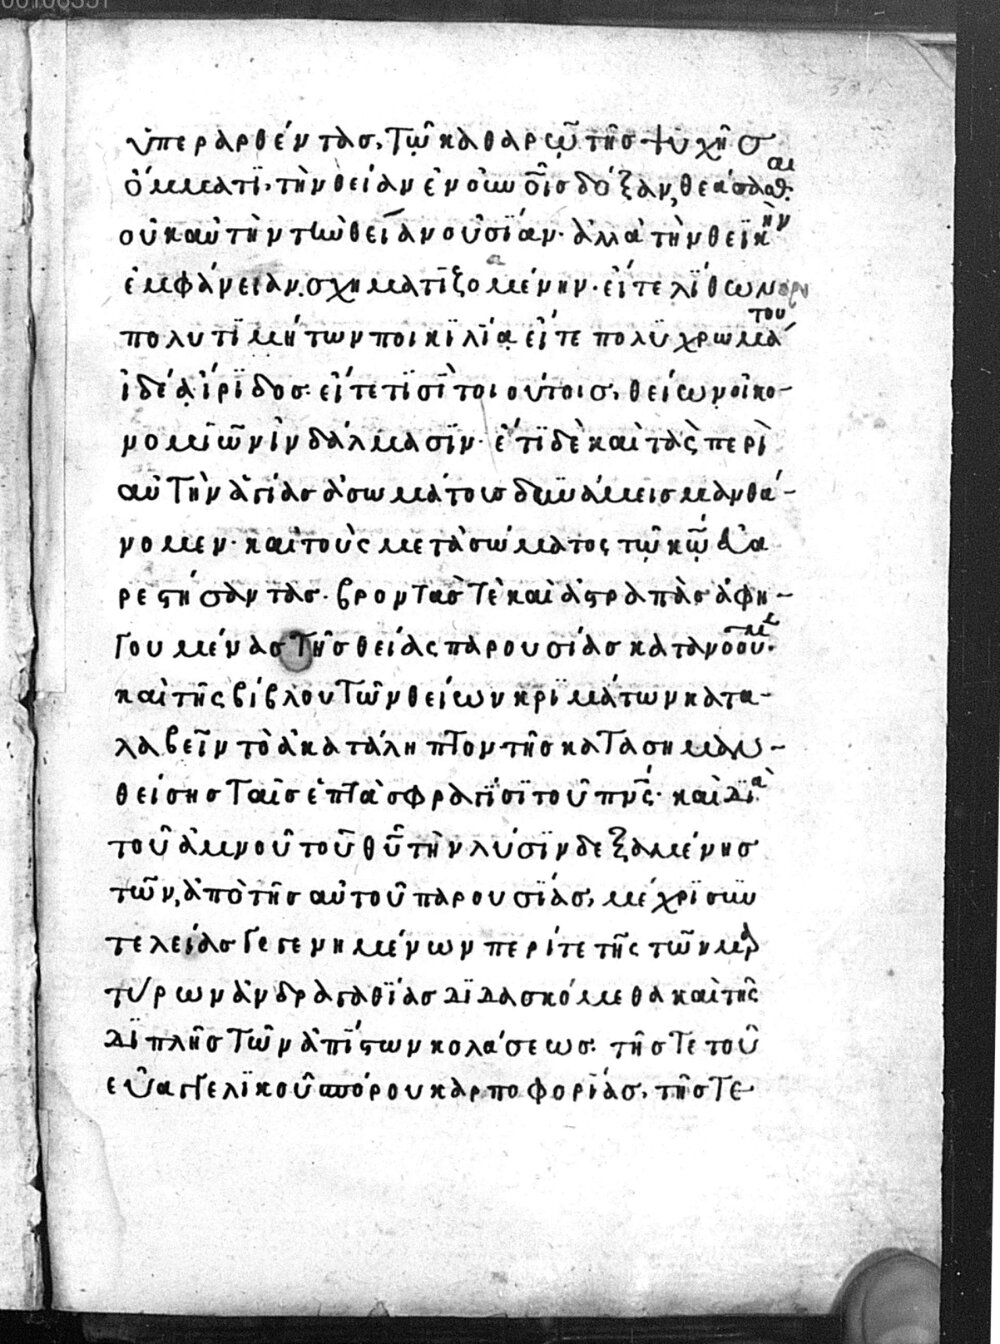 ὑπεραρθέντας, τῷ καθαρῷ τῆς ψυχῆς
ὄμματι, τὴν θείαν ἐνοῖσ δόξαν, θεάσασθαι·
οὐκ αὐτὴν τὴν θείαν οὐσίαν· ἀλλὰ τὴν θεϊκὴν
ἐμφάνειαν σχηματιζομένην· εἴτε λίθων
πολυτιμήτων ποικιλία εἴτε πολυχρωμάτου
ἰδέα ἴριδος· εἴτε τισὶ τοιούτοις, θείων οἰκο-
νομιῶν ἰνδάλμασιν· ἔτι δὲ καὶ τὰς περὶ
αὐτὴν ἁγίας ἀσωμάτους δυνάμεις μανθά-
νομεν· καὶ τοὺς μετὰ σώματος τῷ κῷ εὐα
ρεστήσαντας· βροντάς τὲ καὶ ἀστραπὰς ἀφη-
γουμένας τῆς θείας παρουσίας κατανοοῦμε·
καὶ τῆς βίβλου τῶν θείων κριμάτων κατα-
λαβεῖν τὸ ἀκατάληπτον τῆς κατασημαν-
θείσης ταῖς ἑπτὰ σφραγῖσι τοῦ πνς· καὶ διὰ
τοῦ ἀμνοῦ τοῦ θῦ τὴν λύσιν δεξαμένης
τῶν, ἀπὸ τῆς αὐτοῦ παρουσίας, μέχρι συν
τελείας γεγενημένων περί τε τῆς τῶν μαρ
τύρων ἀνδραγαθίας διδασκόμεθα καὶ τῆς
διπλῆς τῶν ἀπίστων κολάσεως· τῆς τε τοῦ
εὐαγγελικοῦ σπόρου καρποφορίας, τῆς τε